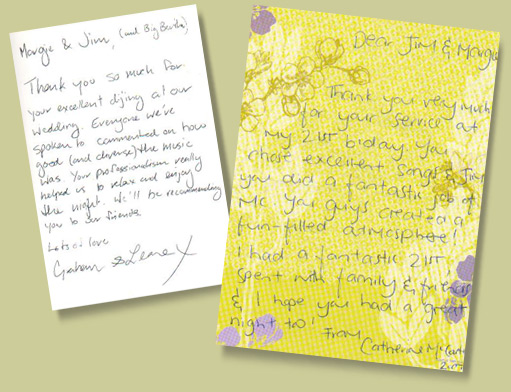 Margie & Jim, (and Big Bertha)
Thank you so much for
your excellent djing at our
wedding. Everyone we've
spoken to commented on how
good (and diverse) the music
was. Your professionalism really
helped us to relax and enjoy
the night. We'll be recommending
you to our friends
Lots of love
Graham & Leanne X
Dear Jim & Margie
Thank you very much
for your service at
my 21st biday. You
chose excellent songs & Jim
you did a fantastic job of
MC. You guys created a
fun-filled atmosphere!
I had a fantastic 21st
spent with family & friends
& I hope you had a great
night too!
From
Catherine